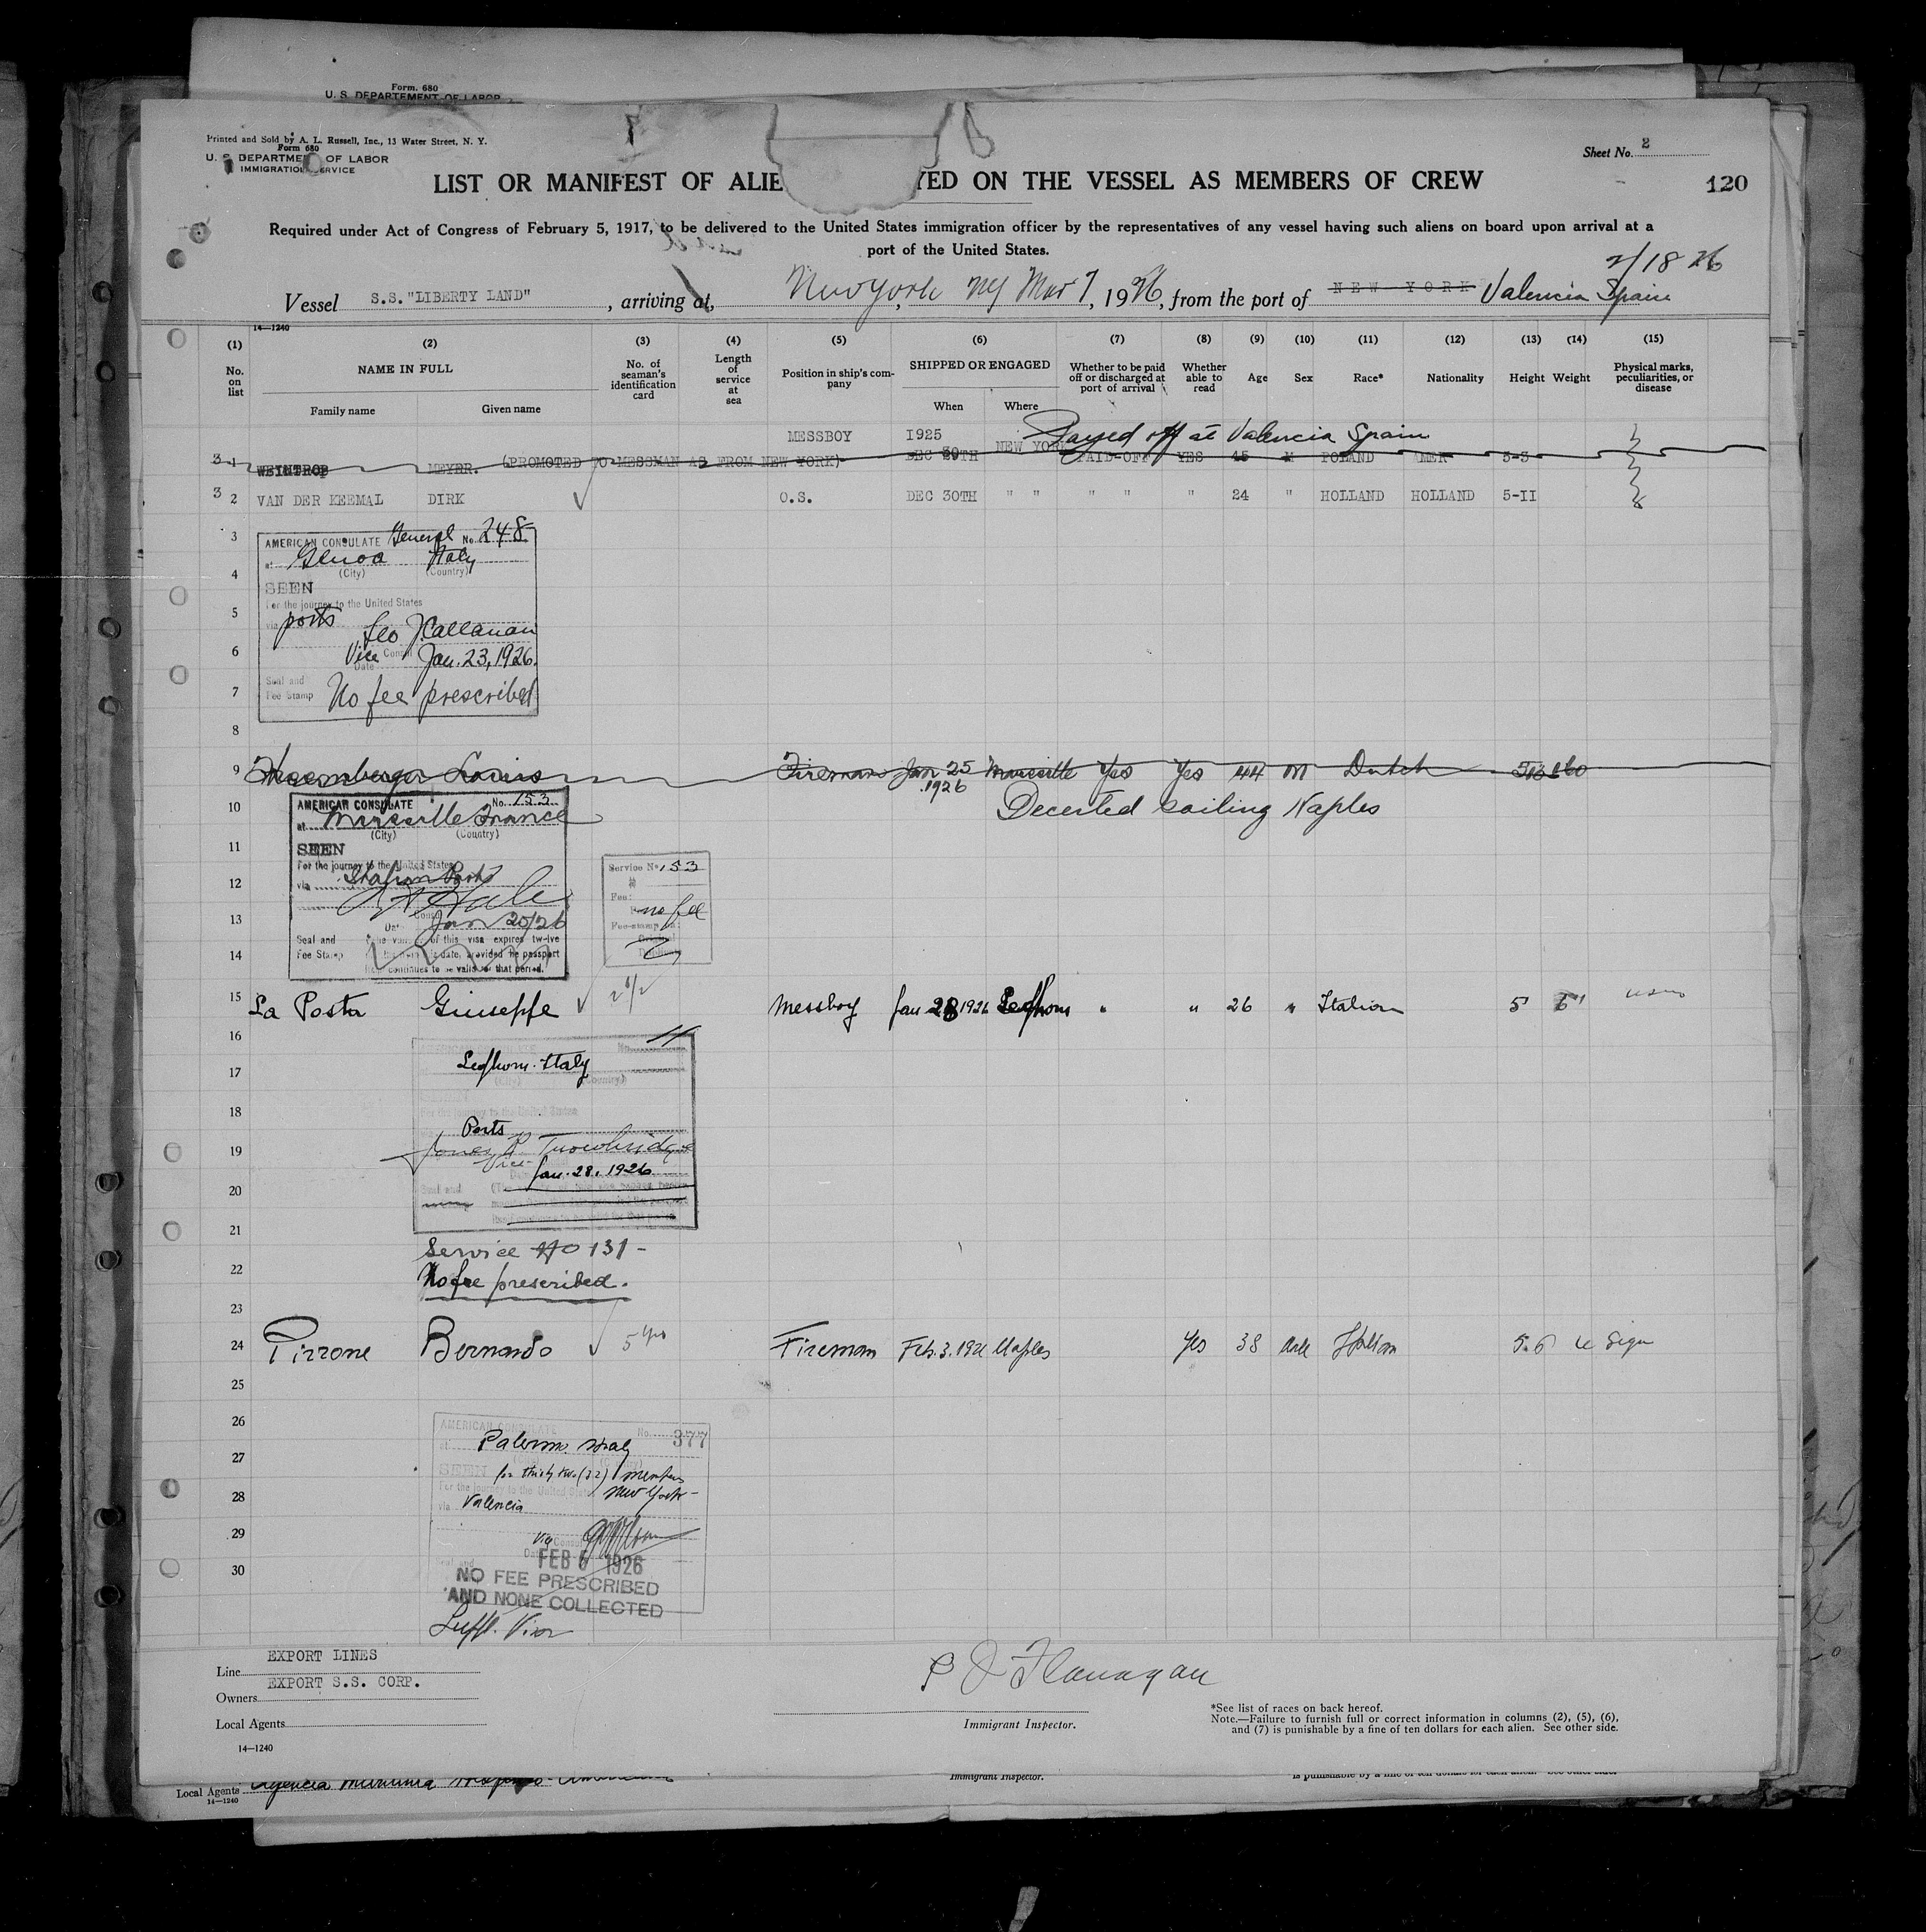 Form. 680
U. S. DEPARTEMENT OF LABOR
Printed and Sold by A. L. Russell, Inc., 13 Water Street, N. Y.
Form 680
U. S. DEPARTMENT OF LABOR
IMMIGRATION SERVICE
Sheet No. 2
LIST OR MANIFEST OF ALIE YED ON THE VESSEL AS MEMBERS OF CREW
120
Required under Act of Congress of February 5, 1917, to be delivered to the United States immigration officer by the representatives of any vessel having such aliens on board upon arrival at a
port of the United States.
2/18 26
Vessel S.S. "LIBERTY LAND", arriving at, New York NY Mar 7, 1926, from the port of NEW YORK Valencia Spain
14—1240
(1) (2) (3) (4) (5) (6) (7) (8) (9) (10) (11) (12) (13) (14) (15)
No. on list
NAME IN FULL
Family name
Given name
No. of seaman's identification card
Length of service at sea
Position in ship's company
SHIPPED OR ENGAGED
When
Where
Whether to be paid off or discharged at port of arrival
Whether able to read
Age
Sex
Race*
Nationality
Height
Weight
Physical marks, peculiarities, or disease
MESSBOY 1925 Payed off at Valencia Spain
3 1 WEINTROP MEYER. (PROMOTED TO MESSMAN AS FROM NEW YORK) DEC 30TH NEW YORK PAID-OFF YES 45 M POLAND AMER 5-3
3 2 VAN DER KEEMAL DIRK O.S. DEC 30TH " " " " " 24 " HOLLAND HOLLAND 5-II
3
AMERICAN CONSULATE General No. 248
at Genoa Italy
4
(City) (Country)
SEEN
For the journey to the United States
5
via ports
Leo J. Callanan
6
Vice Consul
Date Jan. 23, 1926.
7
Seal and
Fee Stamp No fee prescribed
8
9 Louis Fireman Jan 25 1926 Marseille Yes Yes 44 M Dutch 160
Decerted sailing Naples
10
AMERICAN CONSULATE No. 153
at Marseille France
(City) (Country)
11
SEEN
For the journey to the United States
12
via Italian Ports
Hale
Consul
13
Date Jan 25/26
Seal and
Fee Stamp
14
of this visa expires twelve
date, provided the passport
continues to be valid for that period.
Service No 153
Fee:
no fee
15 La Posta Giuseppe Messboy Jan 28 1926 Leghorn " " 26 " Italian 5 6
16
Leghorn. Italy
(City) (Country)
17
18
For the journey to the United States
Ports
19
Trowbridge
Vice
Jan. 28. 1926
20
Seal and
21
Service No 131 -
22
No fee prescribed.
23
24 Pirrone Bernardo 5 yrs Fireman Feb. 3. 1926 Naples Yes 38 Male Italian 5.6
25
26
AMERICAN CONSULATE No. 377
at Palermo. Italy
27
SEEN for thirty two (32) members
For the journey to the United States New York -
28
via Valencia
29
Consul
Date FEB 5 1926
30
Seal and
NO FEE PRESCRIBED
AND NONE COLLECTED
Suppl. Visa
Line EXPORT LINES
Owners EXPORT S.S. CORP.
Local Agents
14—1240
P J Flanagan
Immigrant Inspector.
*See list of races on back hereof.
Note.—Failure to furnish full or correct information in columns (2), (5), (6),
and (7) is punishable by a fine of ten dollars for each alien. See other side.
Local Agents Agencia
14—1240
Immigrant Inspector.